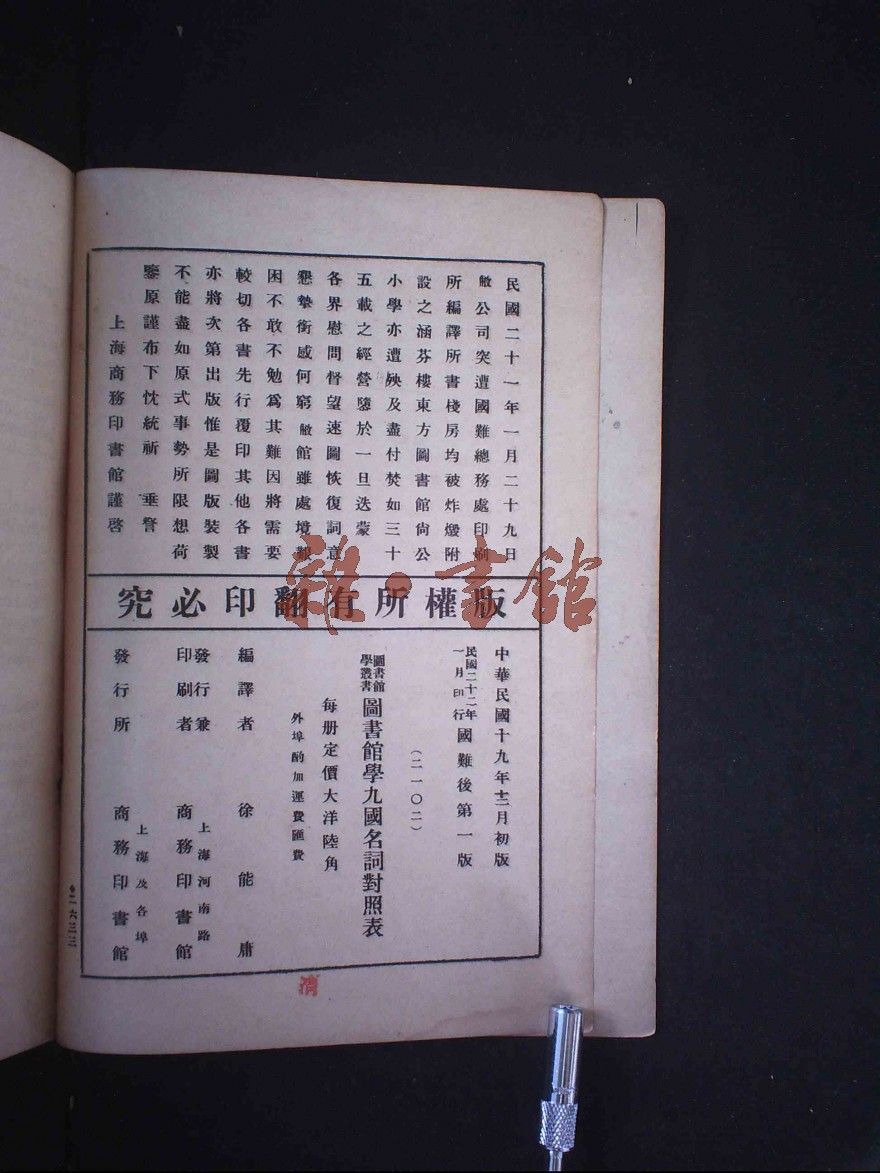 民國二十一年一月二十九日
敝公司突遭國難總務處印刷
所編譯所書棧房均被炸燬附
設之涵芬樓東方圖書館尙公
小學亦遭殃及盡付焚如三十
五載之經營隳於一旦迭蒙
各界慰問督望速圖恢復詞意
懇摯銜感何窮敝館雖處境艱
困不敢不勉爲其難因將需要
較切各書先行覆印其他各書
亦將次第出版惟是圖版裝製
不能盡如原式事勢所限想荷
鑒原謹布下忱統祈　垂詧
上海商務印書館謹啓
版權所有翻印必究
中華民國十九年十二月初版
民國二十二年一月印行國難後第一版
(二一〇二)
圖書館學叢書圖書館學九國名詞對照表
每册定價大洋陸角
外埠酌加運費匯費
編譯者　徐能庸
發行兼印刷者　上海河南路商務印書館
發行所　上海及各埠商務印書館
二六三三
雜·書館